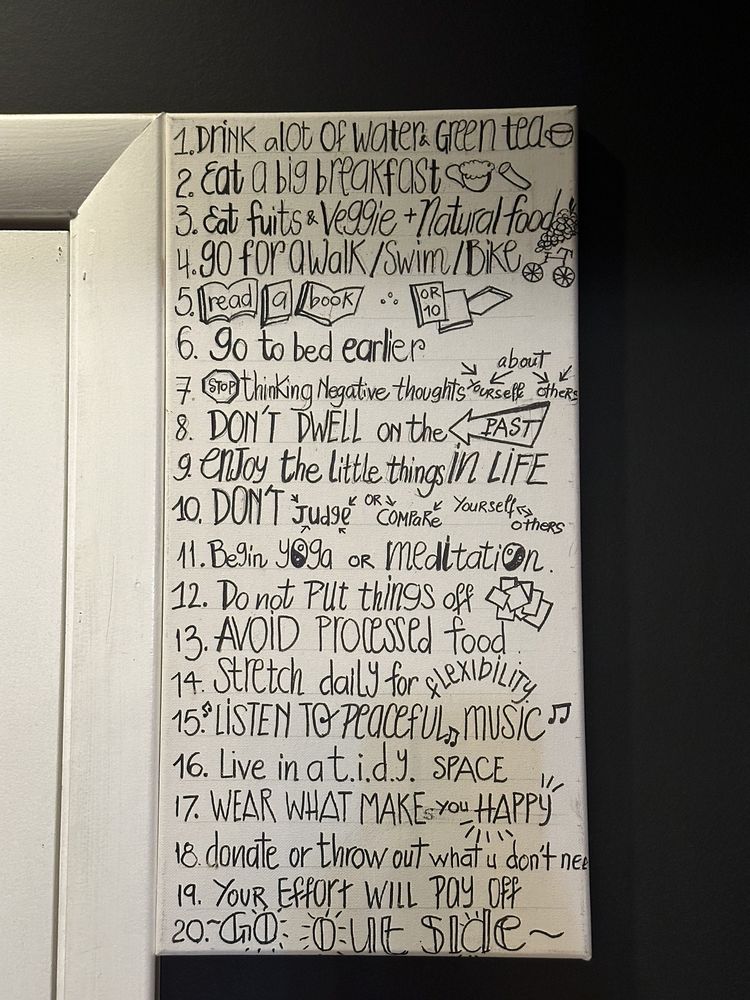 1. DRINK alot OF water & Green tea
2. Eat a big breakfast
3. Eat fuits & Veggie + Natural food
4. go for a walk / Swim / Bike
5. read a book OR 10
6. go to bed earlier
7. STOP thinking Negative thoughts about yourself others
8. DON'T DWELL on the PAST
9. enjoy the little things IN LIFE
10. DON'T Judge OR COMPARE Yourself others
11. Begin yoga OR meditation.
12. Do not Put things off
13. AVOID Processed food.
14. Stretch daily for FLEXIBILITY.
15. LISTEN TO PEACEFUL MUSIC
16. Live in a t.i.d.y. SPACE
17. WEAR WHAT MAKEs you HAPPY
18. donate or throw out what u don't nee
19. YOUR Effort WILL PAY OFF
20. ~GO Out Side~